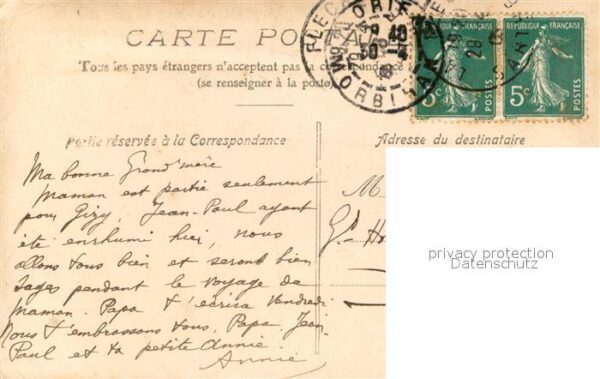 CARTE PO
Tous les pays étrangers n'acceptent pas la correspondance
(se renseigner à la poste)
LORIENT
MORBIHAN
40
30
29
RÉPUBLIQUE FRANÇAISE
5c POSTES
5c POSTES
Partie réservée à la Correspondance
Adresse du destinataire
Ma bonne Grand'mère
Maman est partie seulement
pour Gizy, Jean-Paul ayant
été enrhumé hier, nous
allons tous bien et serons bien
sages pendant le voyage de
maman. Papa t'écrira Vendredi
Nous t'embrassons tous, Papa, Jean
Paul et ta petite Annie.
Annie
M
Gd Ho
privacy protection
Datenschutz